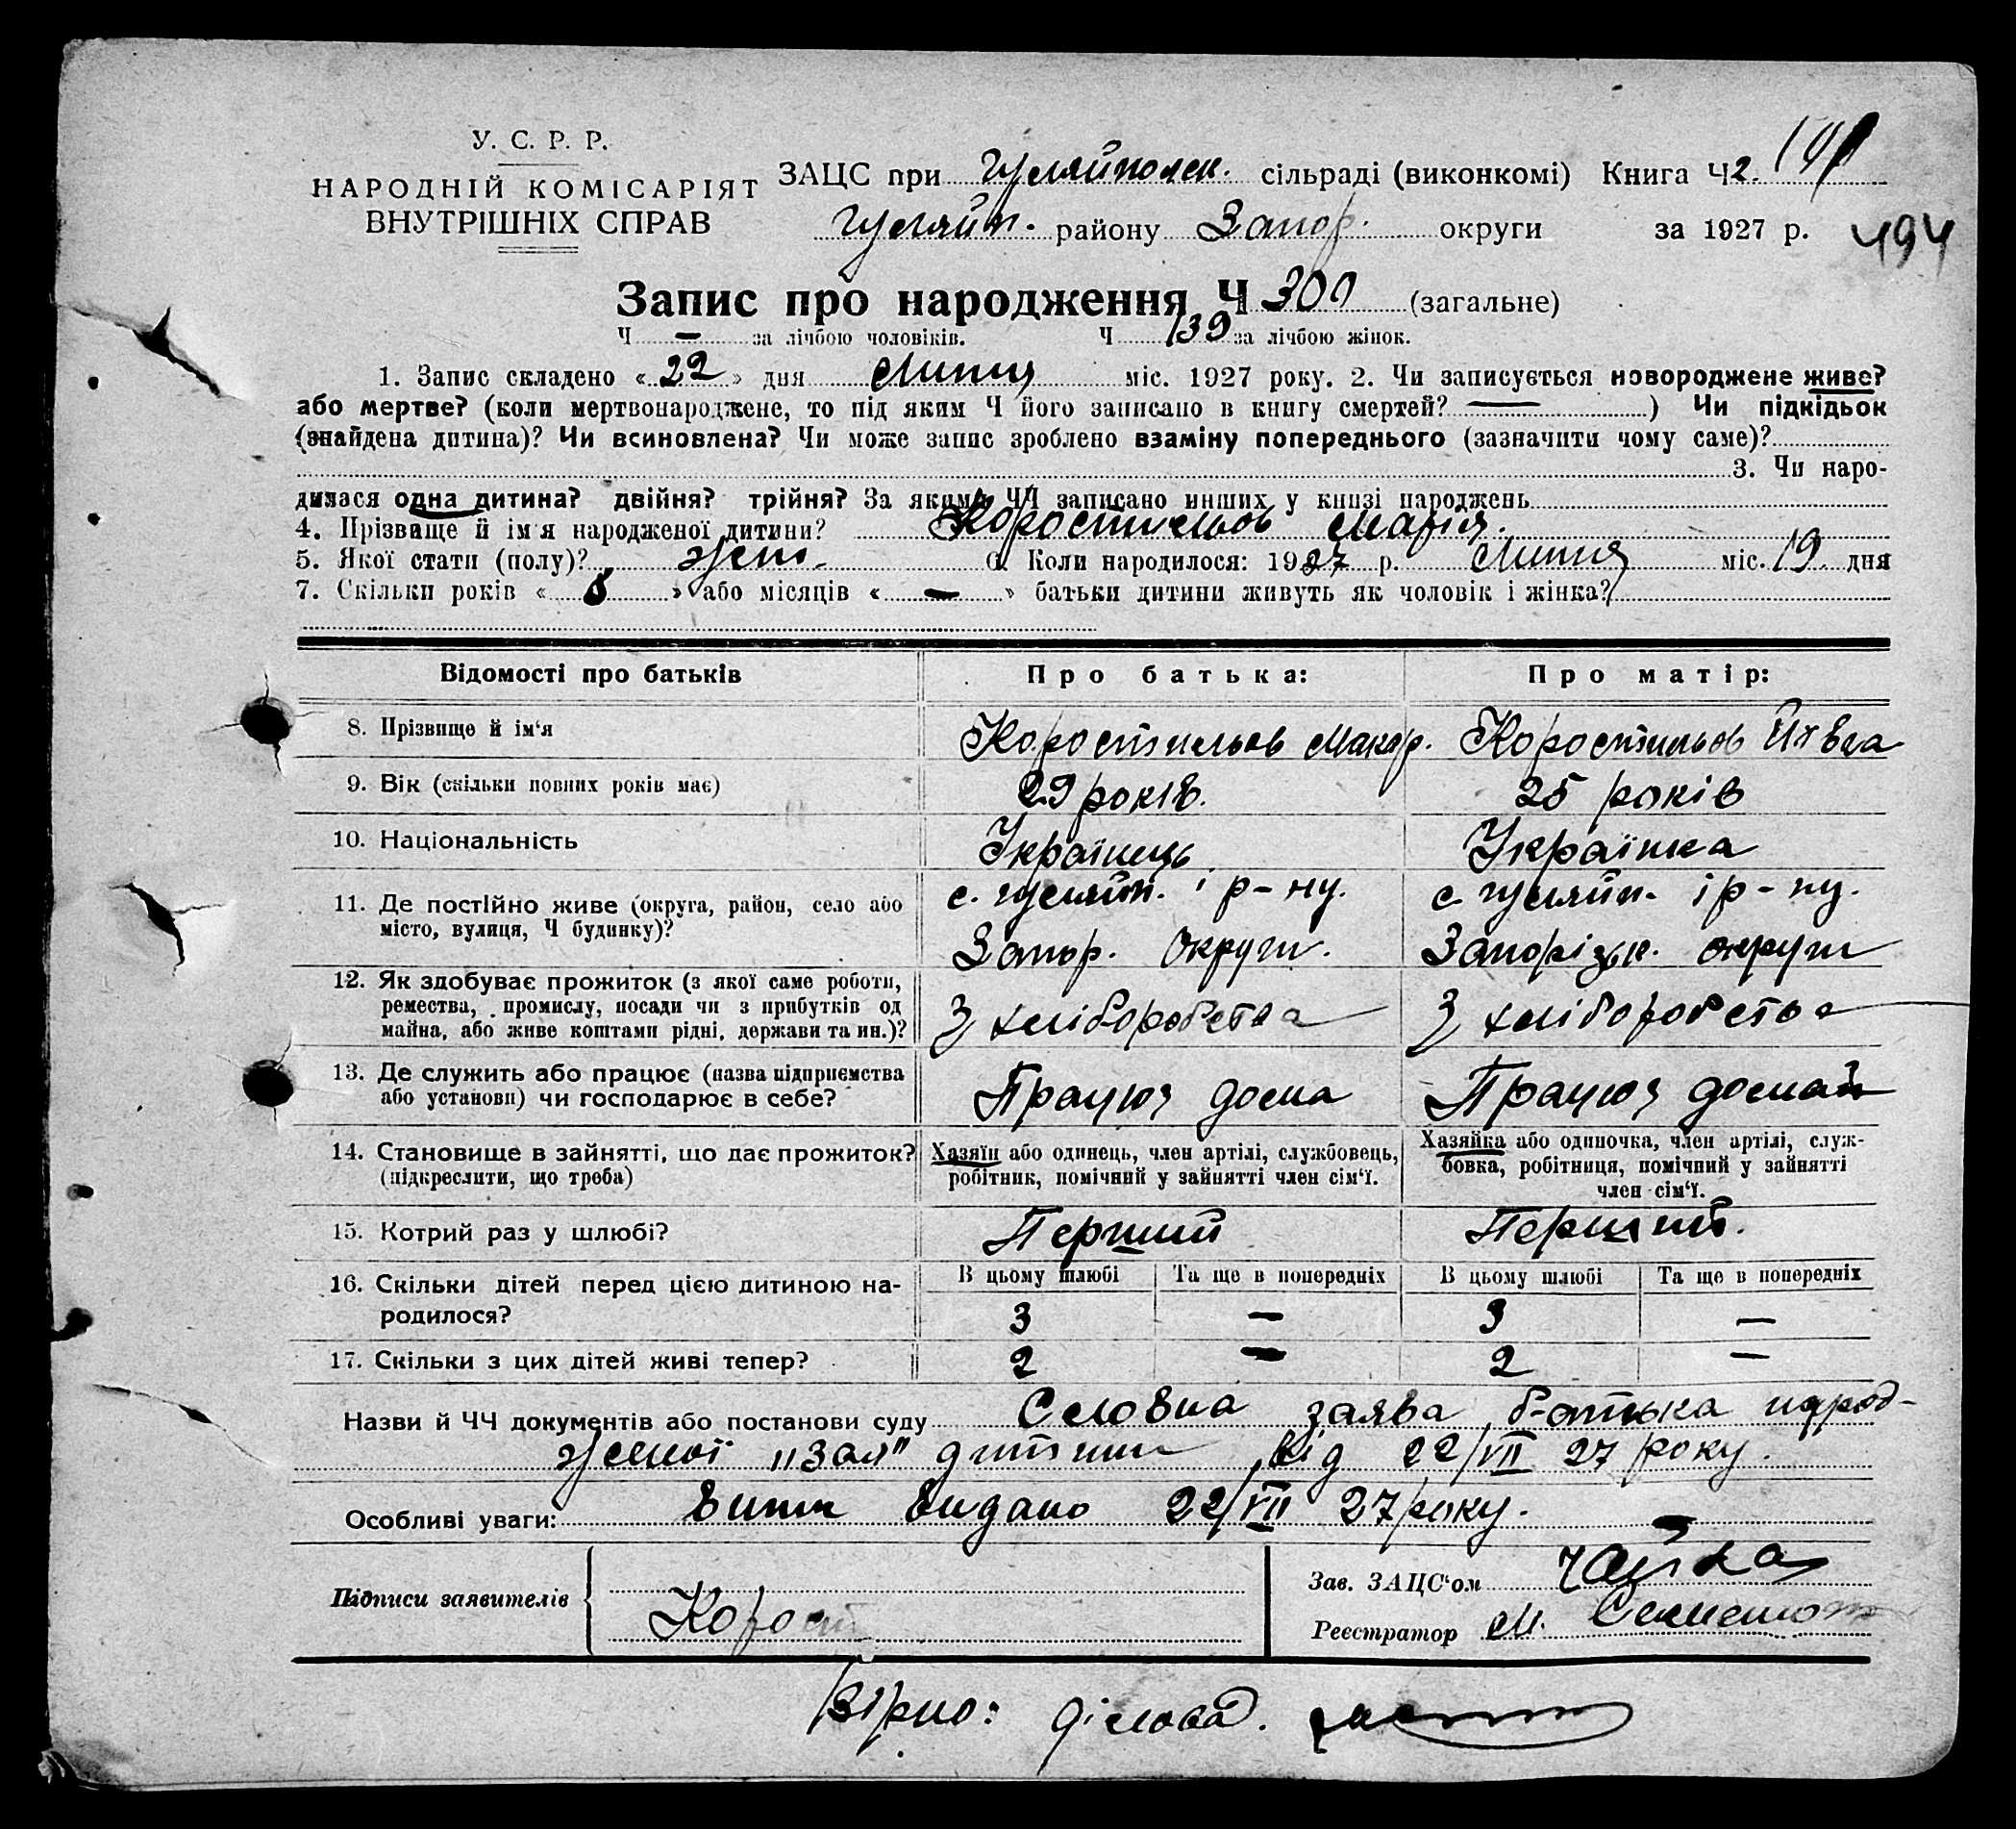 У. С. Р. Р.
НАРОДНІЙ КОМІСАРІЯТ
ВНУТРІШНІХ СПРАВ
ЗАЦС при Гуляйполск. сільраді (виконкомі) Книга Ч 2.
Гуляйп. району Запор. округи за 1927 р. 494
Запис про народження Ч 300 (загальне)
Ч — за лічбою чоловіків. Ч 139 за лічбою жінок.
1. Запис складено « 22 » дня Липця міс. 1927 року. 2. Чи записується новороджене живе?
або мертве? (коли мертвонароджене, то під яким Ч його записано в книгу смертей? — ) Чи підкідьок
(знайдена дитина)? Чи всиновлена? Чи може запис зроблено взаміну попереднього (зазначити чому саме)?
3. Чи наро-
дилася одна дитина? двійня? трійня? За якими ЧЧ записано инших у книзі народжень
4. Прізваще й ім'я народженої дитини? Коростильов Марія.
5. Якої стати (полу)? жен. 6. Коли народилося: 1927 р. Липця міс. 19. дня
7. Скільки років « 8 » або місяців « — » батьки дитини живуть як чоловік і жінка?
Відомості про батьків Про батька: Про матір:
8. Прізвище й ім'я Коростильов Макар. Коростильов Явга
9. Вік (скільки повних років має) 29 років. 25 років
10. Національність Українець Українка
11. Де постійно живе (округа, район, село або с. Гуляйп. і р-ну. с. Гуляйп. і р-ну.
місто, вулиця, Ч будинку)? Запор. Округи. Запорізьк. округи
12. Як здобуває прожиток (з якої саме роботи,
ремества, промислу, посади чи з прибутків од
майна, або живе коштами рідні, держави та ин.)? З хліборобства З хліборобства
13. Де служить або працює (назва підприємства
або установи) чи господарює в себе? Працює дома Працює дома
14. Становище в зайнятті, що дає прожиток? Хазяїн або одинець, член артілі, службовець, Хазяйка або одиночка, член артілі, служ-
(підкреслити, що треба) робітник, помічний у зайнятті член сім'ї. бовка, робітниця, помічний у зайнятті
член сім'ї.
15. Котрий раз у шлюбі? Перший Перший.
16. Скільки дітей перед цією дитиною на- В цьому шлюбі Та ще в попередніх В цьому шлюбі Та ще в попередніх
родилося? 3 — 3 —
17. Скільки з цих дітей живі тепер? 2 — 2 —
Назви й ЧЧ документів або постанови суду Словна заява батька народ-
женої дитини від 22/VII 27 року.
Особливі уваги: Витяг видано 22/VII 27 року. —
Підписи заявителів Корост
Зав. ЗАЦС'ом Чайка
Реєстратор М.
Вірно: діловод.